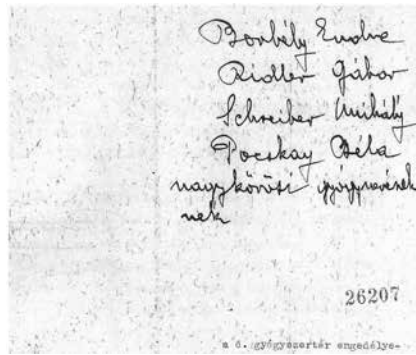 Borbély Endre
Ridler Gábor
Schreiber Mihály
Pocskay Béla
nagykőrösi
nek
26207
a 6. gyógyszertár engedélye-